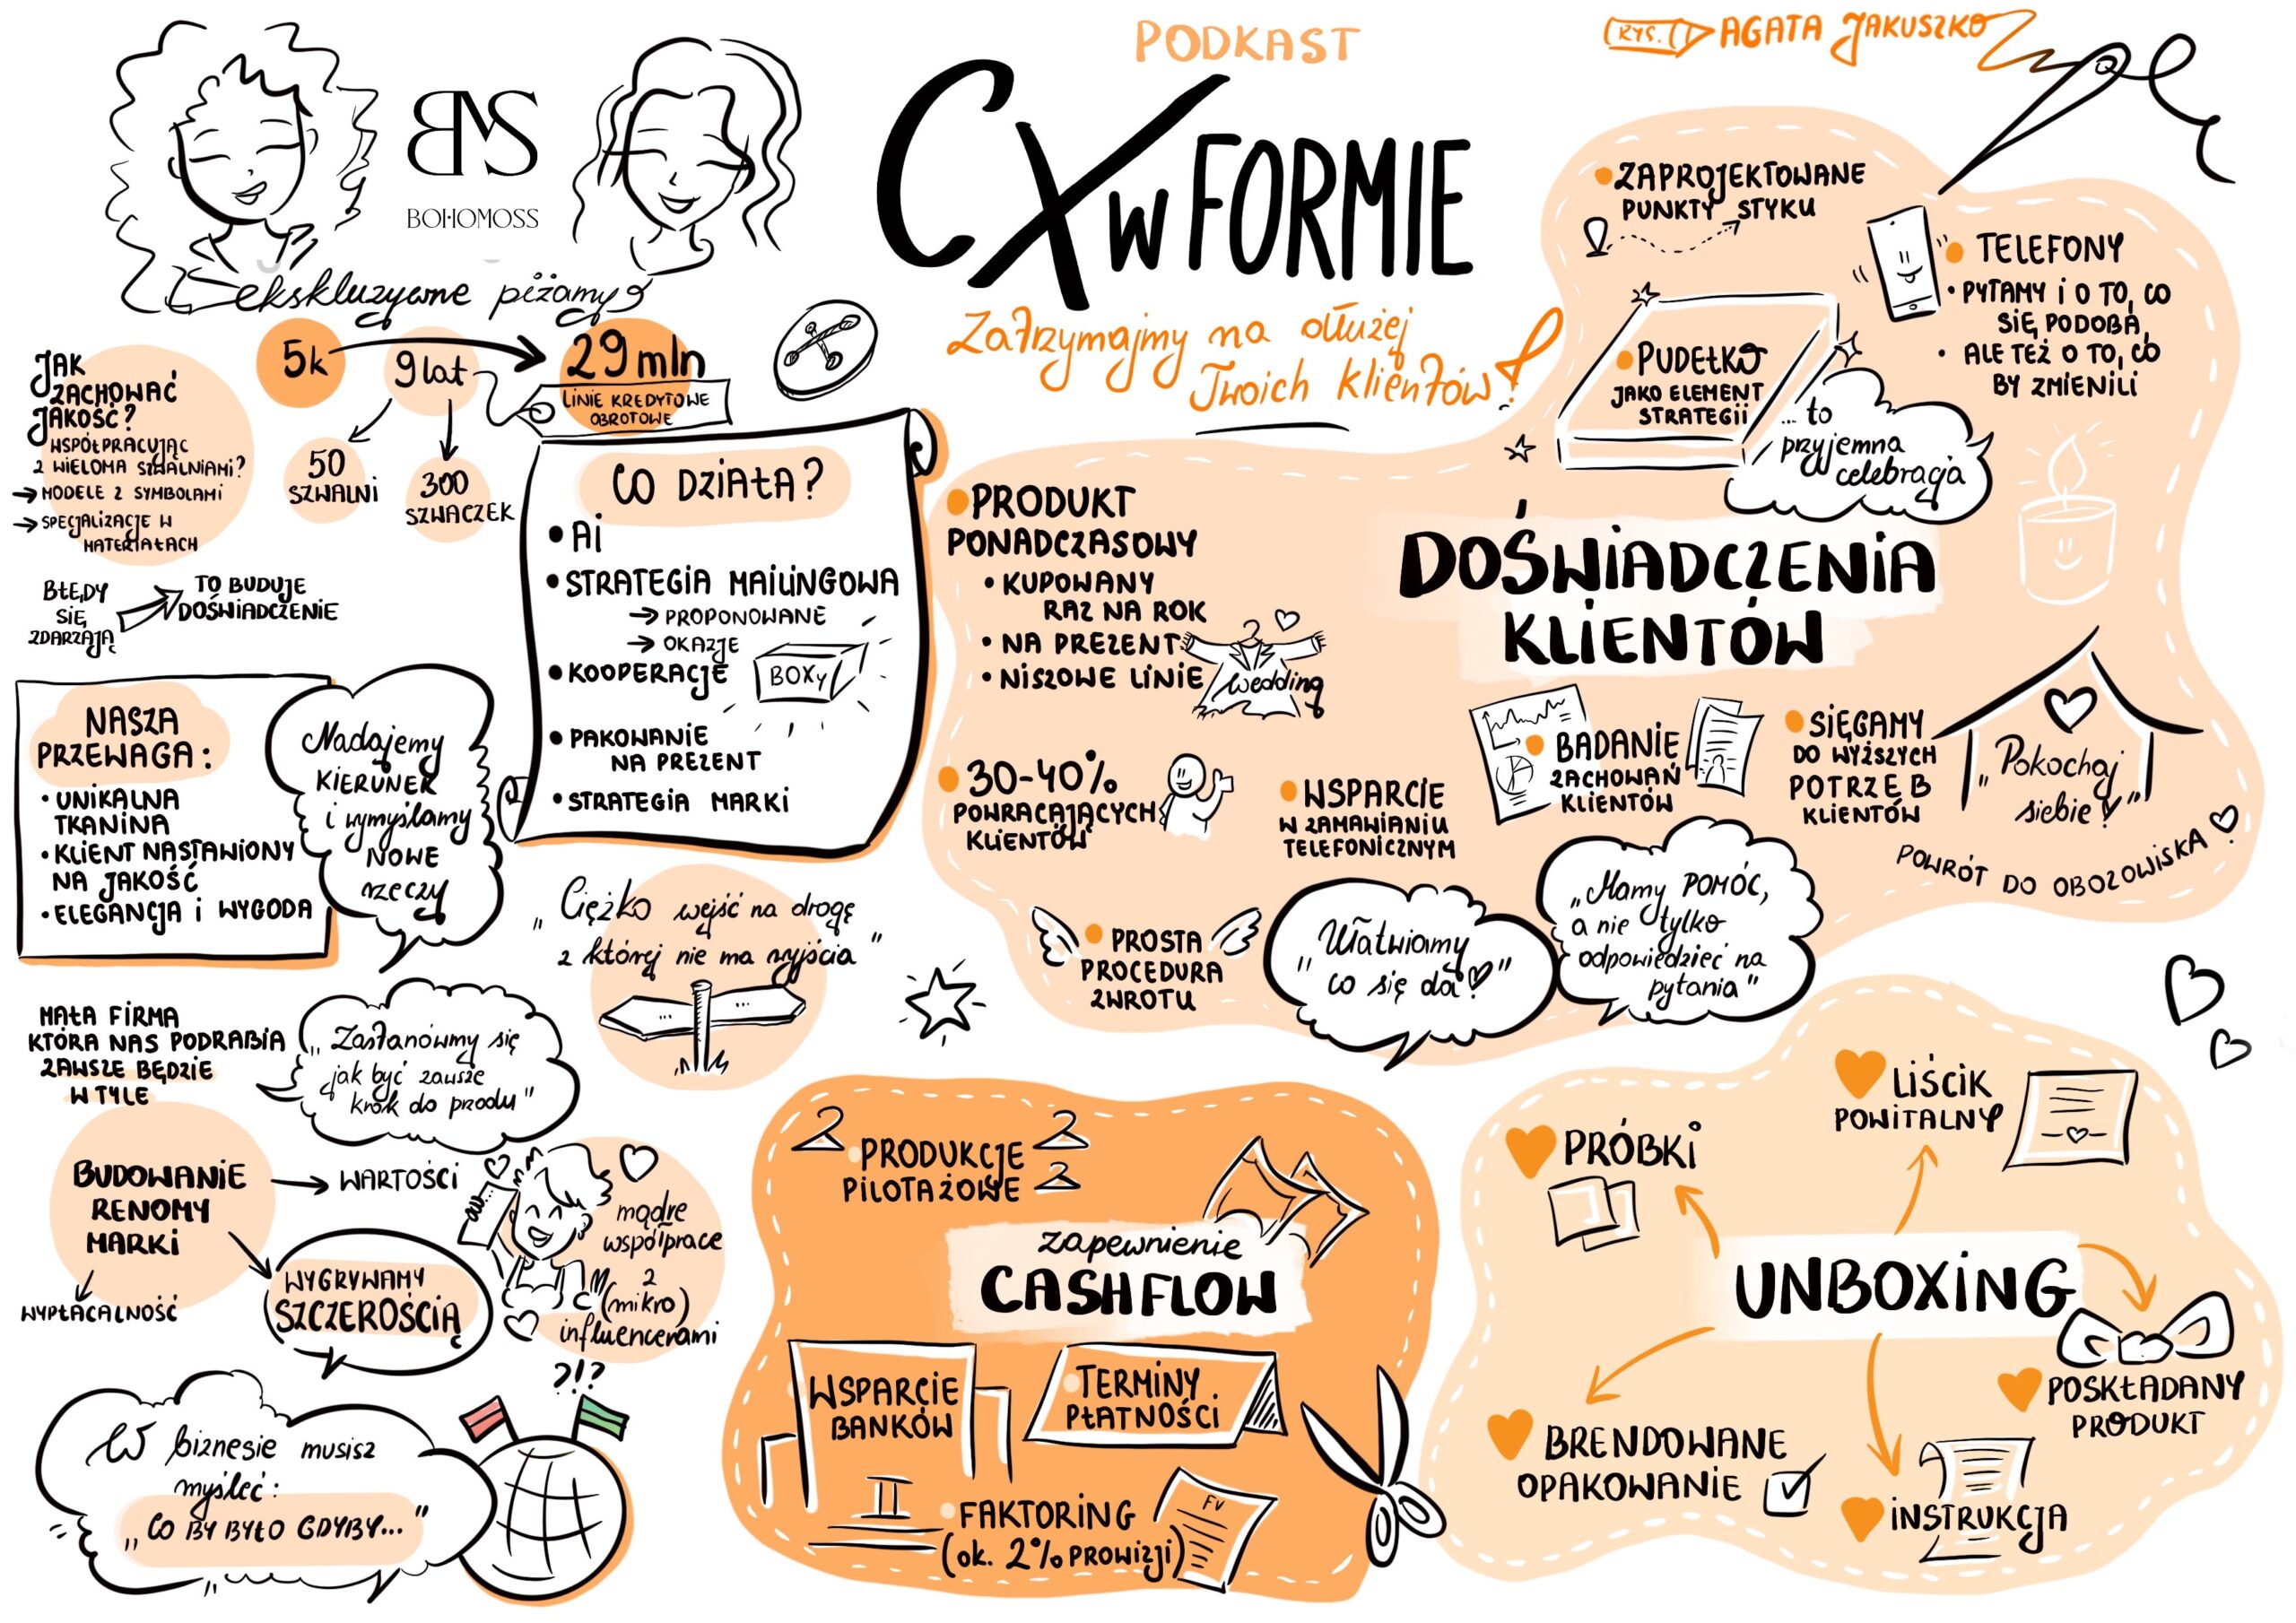 PODKAST
CX W FORMIE
Zatrzymajmy na dłużej
Twoich klientów!
RYS. AGATA JAKUSZKO
BMS
BOHOMOSS
ekskluzywne piżamy
5k
9 lat
29 mln
LINIE KREDYTOWE
OBROTOWE
50
SZWALNI
300
SZWACZEK
JAK
ZACHOWAĆ
JAKOŚĆ?
WSPÓŁPRACUJĄC
Z WIELOMA SZWALNIAMI?
→ MODELE Z SYMBOLAMI
→ SPECJALIZACJE W
MATERIAŁACH
BŁĘDY
SIĘ
ZDARZAJĄ
TO BUDUJE
DOŚWIADCZENIE
NASZA
PRZEWAGA:
• UNIKALNA
TKANINA
• KLIENT NASTAWIONY
NA JAKOŚĆ
• ELEGANCJA I WYGODA
Nadajemy
KIERUNEK
i wymyślamy
NOWE
rzeczy
CO DZIAŁA?
• AI
• STRATEGIA MAILINGOWA
→ PROPONOWANE
→ OKAZJE
• KOOPERACJE
BOXY
• PAKOWANIE
NA PREZENT
• STRATEGIA MARKI
„Ciężko wejść na drogę
z której nie ma wyjścia"
MAŁA FIRMA
KTÓRA NAS PODRABIA
ZAWSZE BĘDZIE
W TYLE
„Zastanówmy się
jak być zawsze
krok do przodu"
BUDOWANIE
RENOMY
MARKI
WARTOŚCI
WYPŁACALNOŚĆ
WYGRYWAMY
SZCZEROŚCIĄ
mądre
współprace
z
(mikro)
influencerami
W biznesie musisz
myśleć:
„CO BY BYŁO GDYBY..."
?!?
• ZAPROJEKTOWANE
PUNKTY STYKU
• TELEFONY
• PYTAMY I O TO, CO
SIĘ PODOBA,
• ALE TEŻ O TO, CO
BY ZMIENILI
• PUDEŁKO
JAKO ELEMENT
STRATEGII
... to
przyjemna
celebracja
DOŚWIADCZENIA
KLIENTÓW
• PRODUKT
PONADCZASOWY
• KUPOWANY
RAZ NA ROK
• NA PREZENT
• NISZOWE LINIE
wedding
• 30-40%
POWRACAJĄCYCH
KLIENTÓW
• WSPARCIE
W ZAMAWIANIU
TELEFONICZNYM
• BADANIE
ZACHOWAŃ
KLIENTÓW
• SIĘGAMY
DO WYŻSZYCH
POTRZEB
KLIENTÓW
„Pokochaj
siebie"
POWRÓT DO OBOZOWISKA
• PROSTA
PROCEDURA
ZWROTU
„Ułatwiamy
co się da!"
„Mamy POMÓC,
a nie tylko
odpowiedzieć na
pytania"
• PRODUKCJE
PILOTAŻOWE
zapewnienie
CASHFLOW
• WSPARCIE
BANKÓW
• TERMINY
PŁATNOŚCI
• FAKTORING
(ok. 2% PROWIZJI)
FV
UNBOXING
PRÓBKI
LIŚCIK
POWITALNY
POSKŁADANY
PRODUKT
BRENDOWANE
OPAKOWANIE
INSTRUKCJA